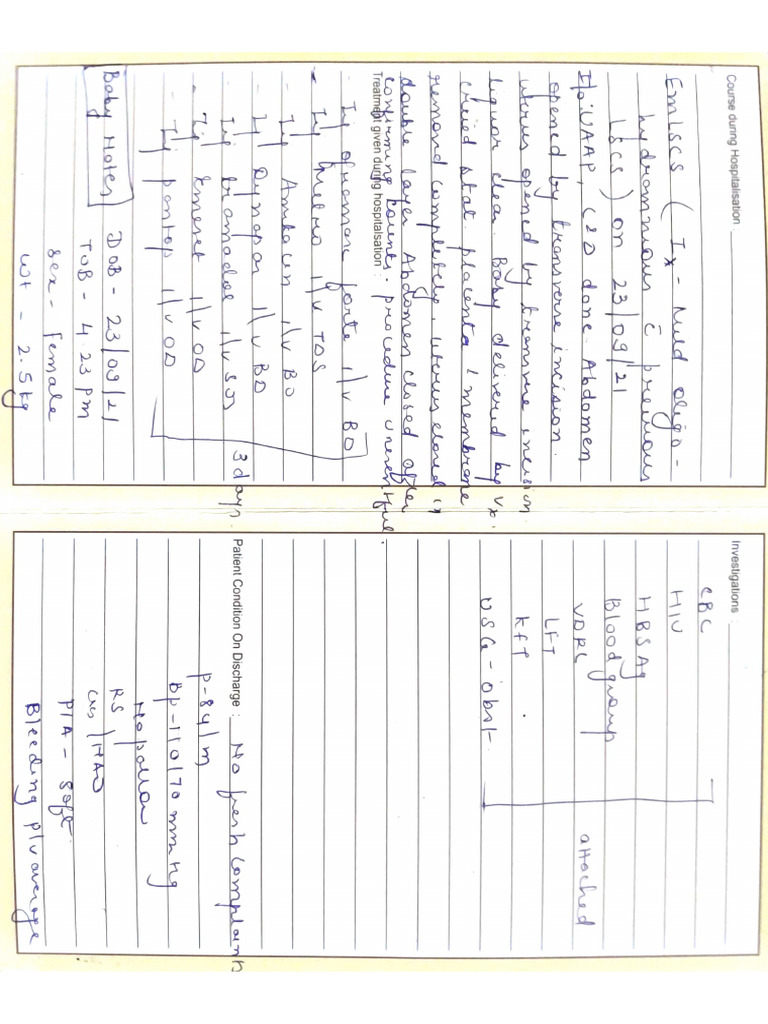 Course during Hospitalisation
EmLSCS ( Ix - Mild oligo-
hydramnious c̄ previous
LSCS ) on 23/09/21
U/AAP, C&D done. Abdomen
opened by transverse incision.
uterus opened by transvere incision
liquor clear. Baby delivered by vx.
cried stat. placenta & membrane
removd completely, uterus closed in
double layer Abdomen closed after
confirming counts. procedure uneventful.
Treatment given during hospitalisation :
- Inj oframax forte I/V BD
- Inj Metro I/V TDS
- Inj Amikacin I/V BD
- Inj Dynapar I/V BD
Inj tramadol I/V SOS
- Inj Emeset I/V OD
- Inj pantop I/V OD
3 days.
Baby Notes
DOB - 23/09/21
TOB - 4.23 pm
Sex - female
Wt - 2.5kg
Investigations :
CBC
HIV
HBSAg
Blood group
VDRL
LFT
KFT
USG - obst
attached
Patient Condition On Discharge : No fresh complaints
P - 84/m
Bp - 110/70 mmHg
No pallor
RS
CVS / NAD
P/A - soft.
Bleeding P/V average